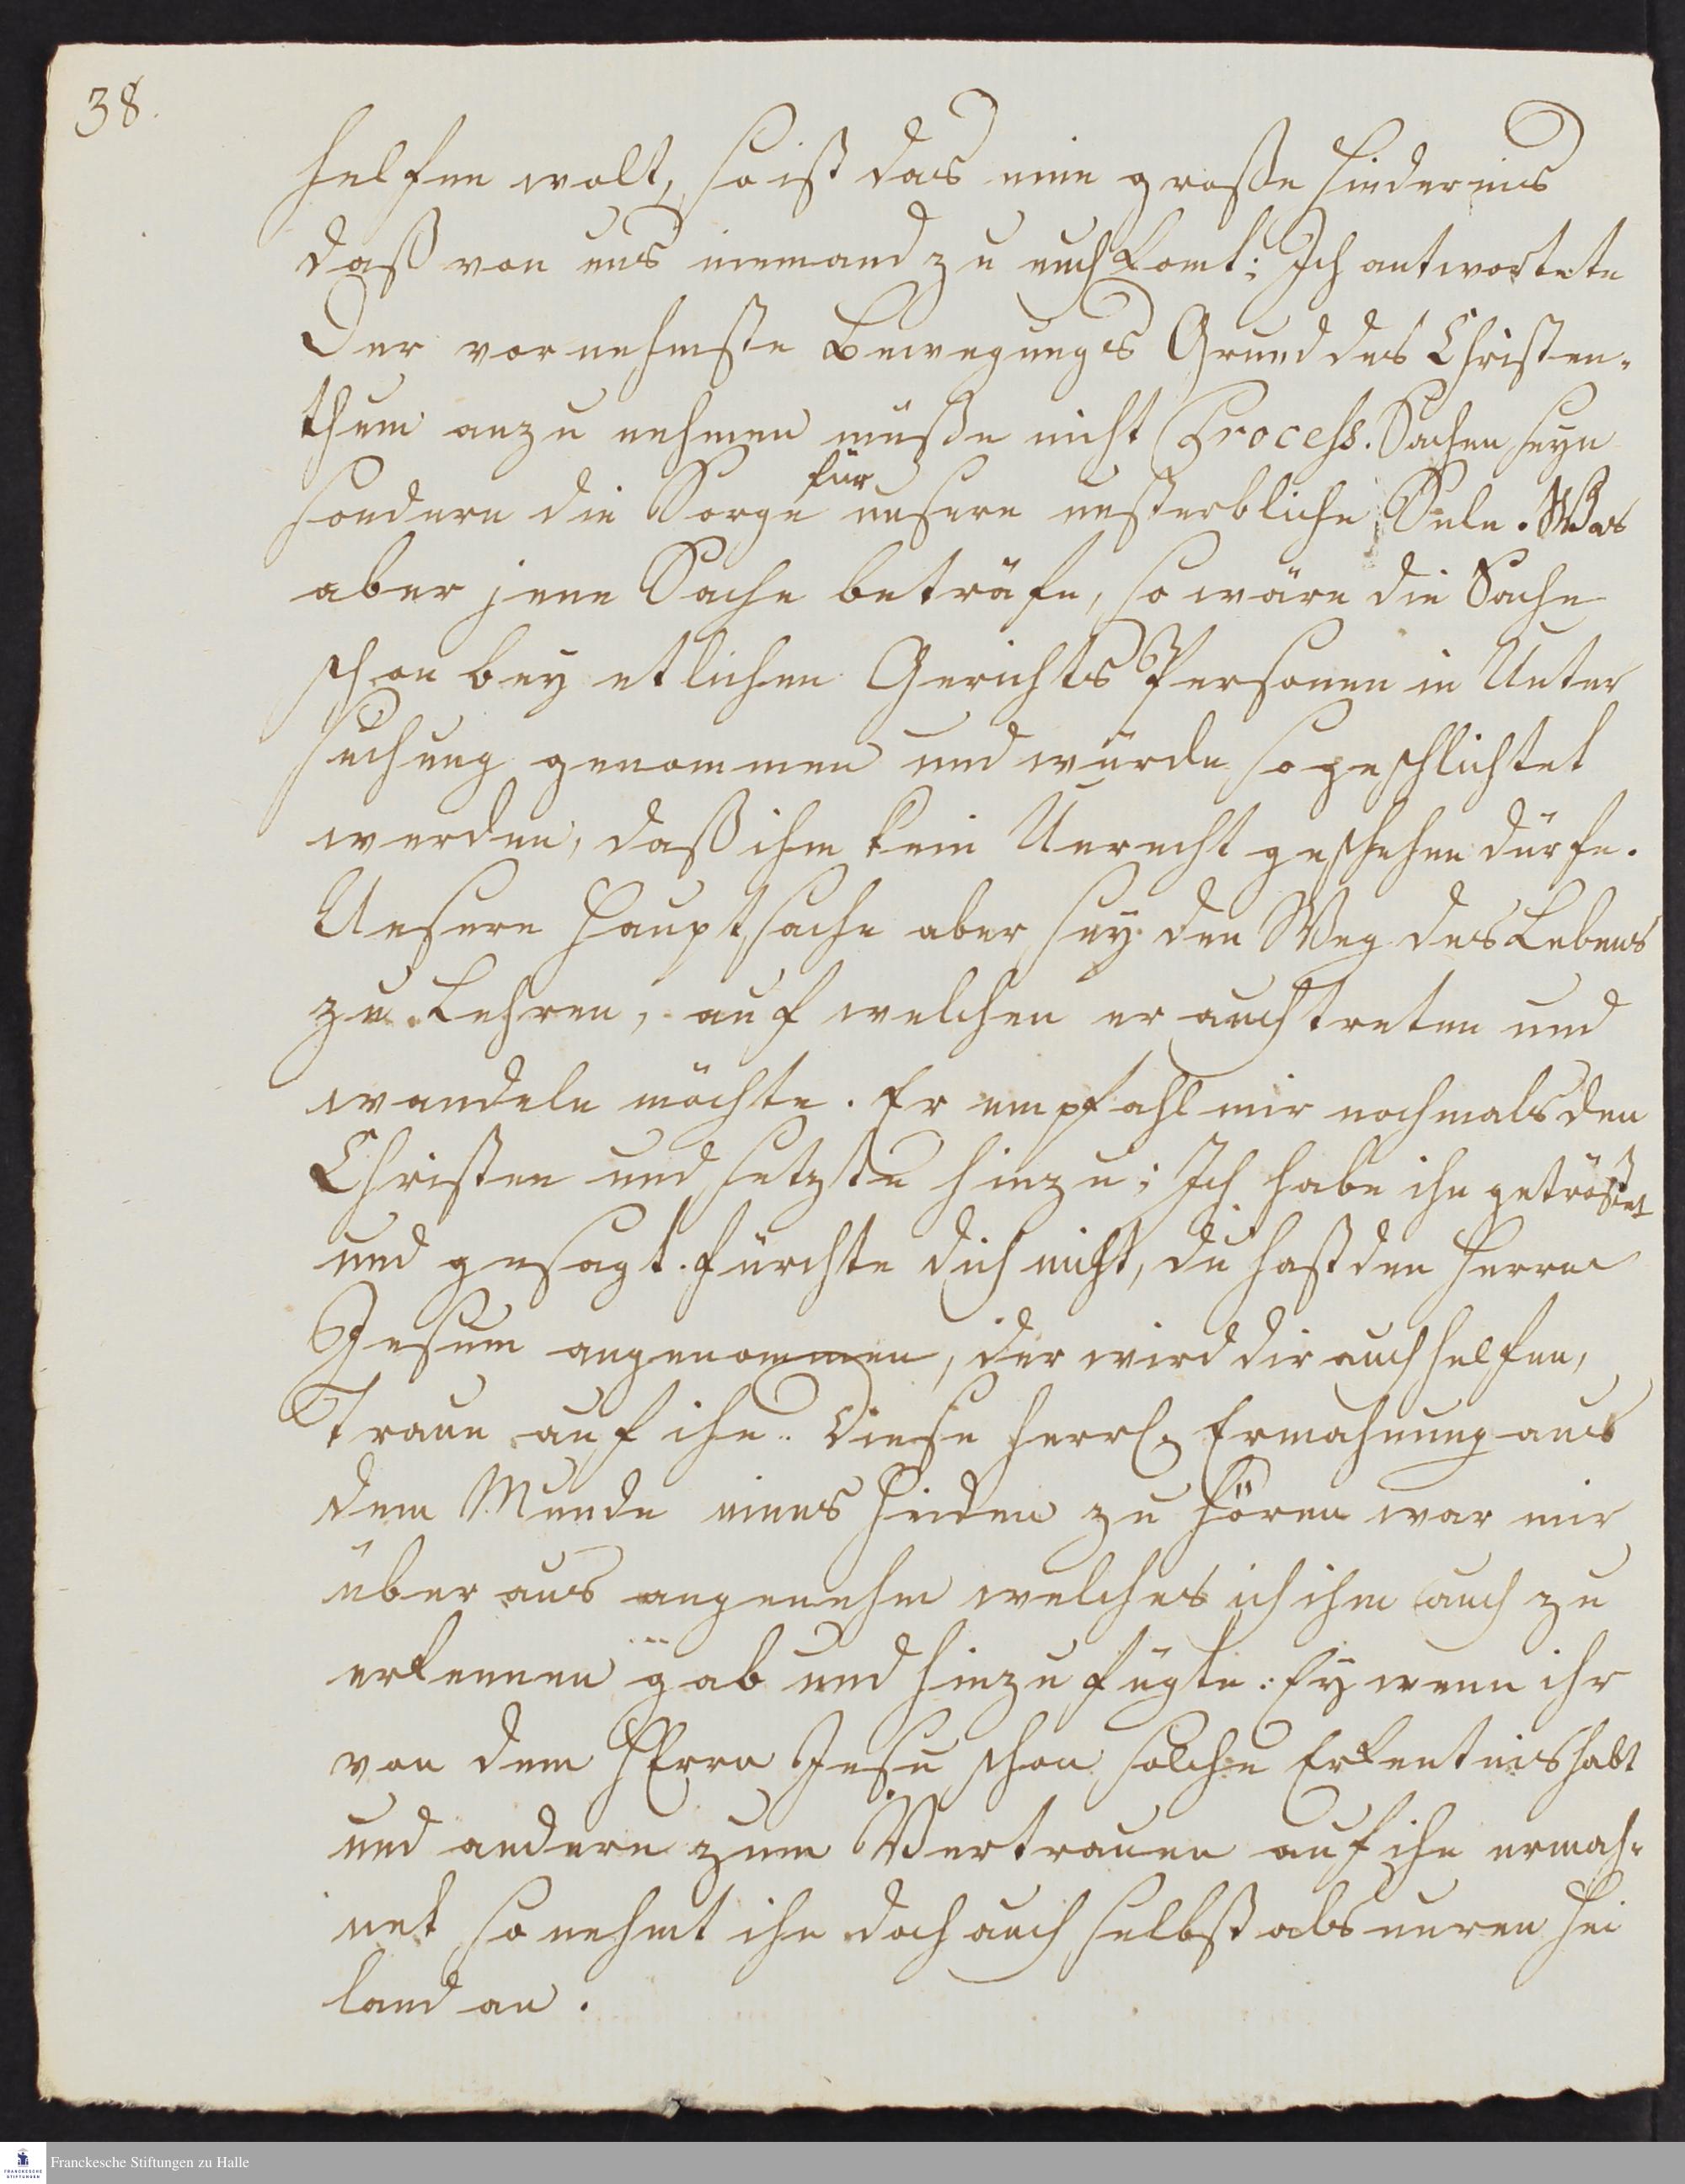 38.
helfen wolt, so ist das eine große Hindernis
daß von uns niemand zu euch komt: Ich antwortete
Der vornehmste Bewegungs Grund das Christen-
thum anzu nehmen müße nicht Process. Sachen seyn
sondern die Sorge für unsere unsterbliche Sele. Was
aber jene Sache beträfe, so wäre die Sache
schon bey etlichen Gerichts Personen in Unter
suchung genommen und würde so geschlichtet
werden, daß ihm kein Unrecht geschehen dürfe.
Unsere Hauptsache aber sey den Weg des Lebens
zu Lehren, auf welchen er auch treten und
wandeln möchte. Er empfahl mir nochmals den
Christen und setzte hinzu; Ich habe ihn getröstet
und gesagt. fürchte dich nicht, du hast den Herrn
Jesum angenommen, der wird dir auch helfen,
Traue auf ihn. Diese herrl. Ermahnung aus
dem Munde eines Heiden zu hören war mir
über aus angenehm welches ich ihm auch zu
erkennen gab und hinzu fügte: Ey wenn ihr
von dem HErrn Jesu schon solche Erkentnis habt
und andere zum Vertrauen auf ihn ermah-
net so nehmt ihn doch auch selbst als euren Hei
land an.
Franckesche Stiftungen zu Halle
FRANCKESCHE
STIFTUNGEN